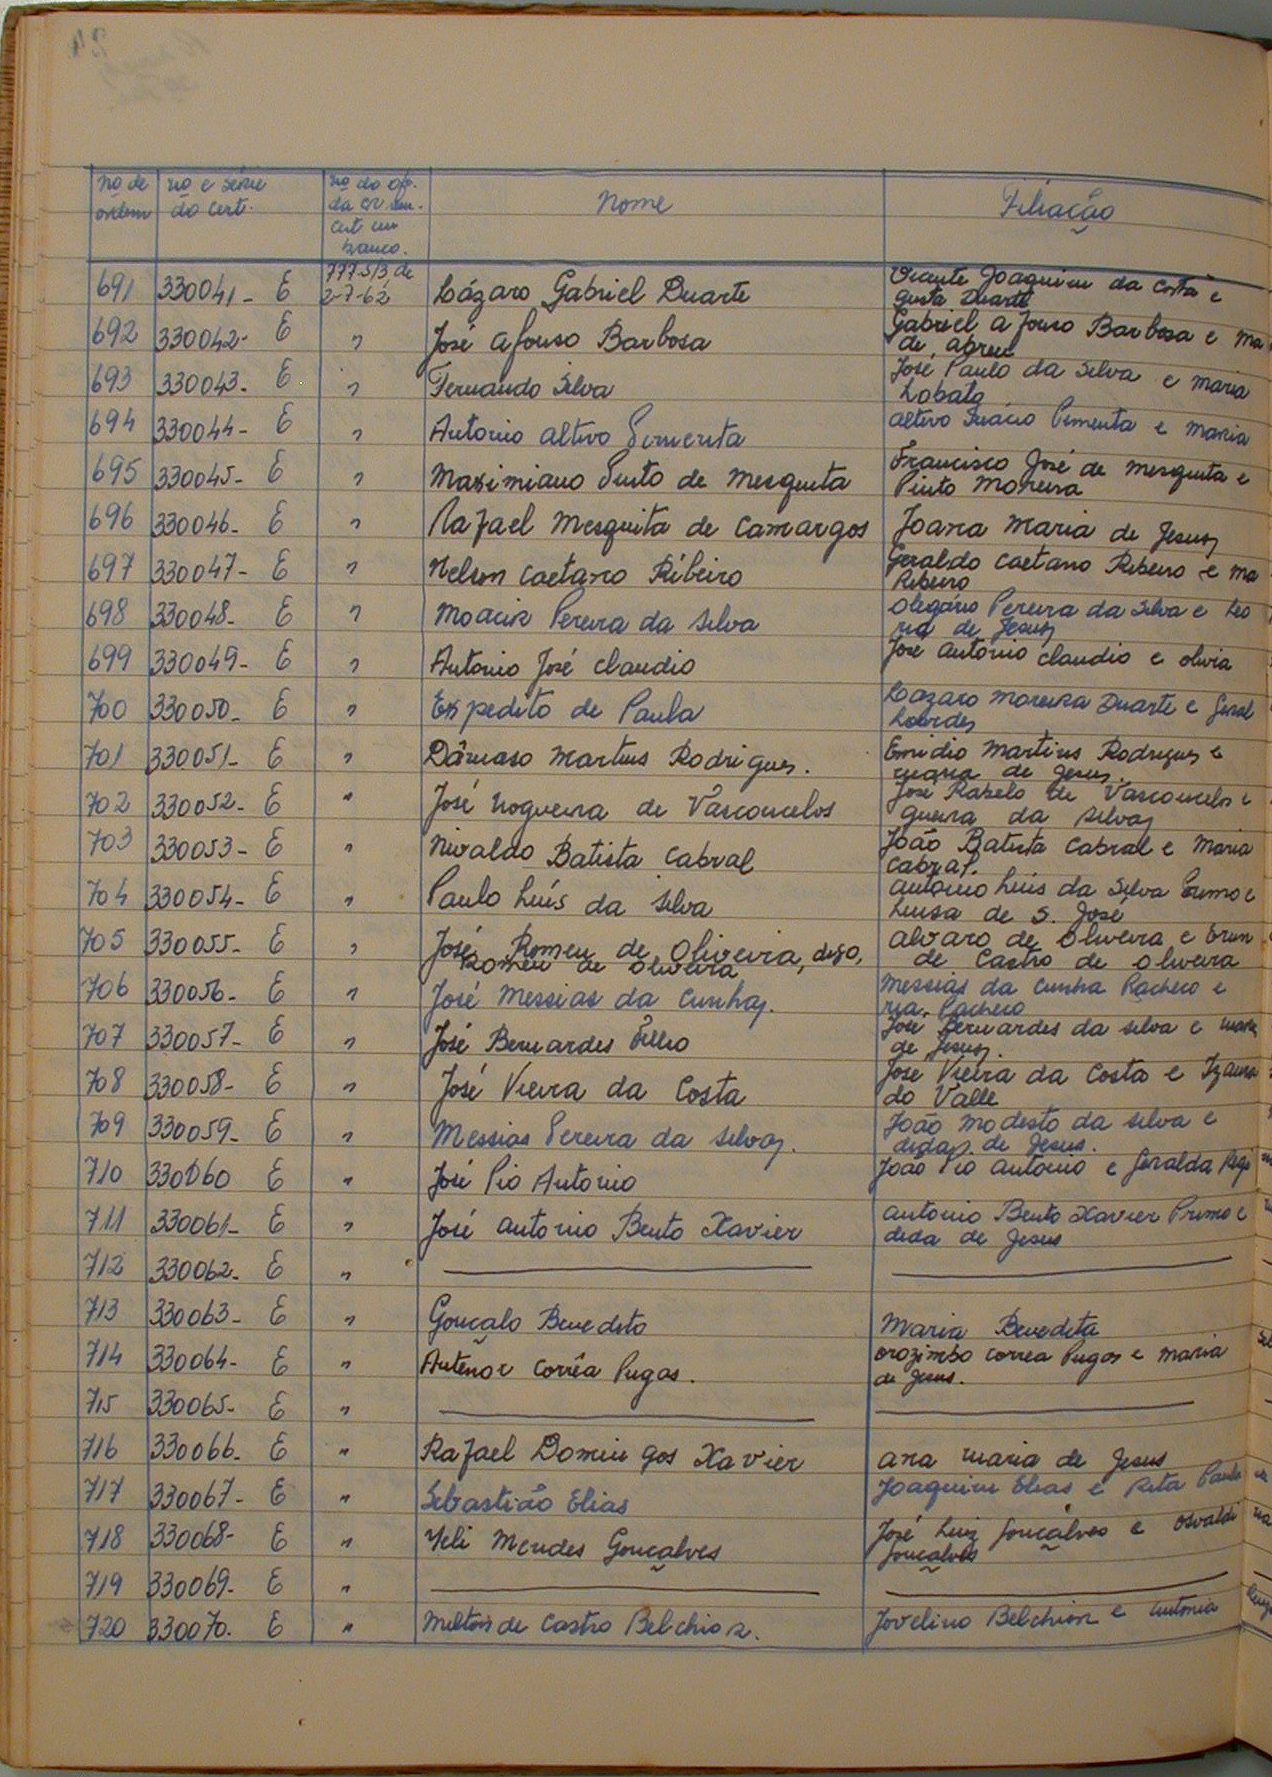 nº de ordem | nº e série do cert. | nº do of. da cr cert em branco. | Nome | Filiação
691 330041- E 777-S/3, de 2-7-62 Lázaro Gabriel Duarte Vicente Joaquim da Costa e
Duarte
692 330042- E " José Afonso Barbosa Gabriel Afonso Barbosa e Ma
de Abreu
693 330043- E " Fernando Silva José Paulo da Silva e Maria
Lobato
694 330044- E " Antonio Altivo Pimenta Altivo Inácio Pimenta e Maria
695 330045- E " Maximiano Pinto de Mesquita Francisco José de Mesquita e
Pinto Moreira
696 330046- E " Rafael Mesquita de Camargos Joana Maria de Jesus
697 330047- E " Nelson Caetano Ribeiro Geraldo Caetano Ribeiro e Ma
Ribeiro
698 330048- E " Moacir Pereira da Silva Olegário Pereira da Silva e Leo
ria de Jesus
699 330049- E " Antonio José Claudio José Antonio Claudio e Olivia
700 330050- E " Expedito de Paula Lazaro Moreira Duarte e Geral
Lourdes
701 330051- E " Dâmaso Martins Rodrigues. Emidio Martins Rodrigues e
maria de Jesus.
702 330052- E " José Nogueira de Vasconcelos José Rabelo de Vasconcelos e
gueira da Silva
703 330053- E " Nivaldo Batista Cabral João Batista Cabral e Maria
Cabral.
704 330054- E " Paulo Luís da Silva Antonio Luis da Silva Primo e
Luisa de S. José
705 330055- E " José Romeu de Oliveira, digo, Alvaro de Oliveira e
Romeu de Oliveira de Castro de Oliveira
706 330056- E " José Messias da Cunha. Messias da Cunha Pacheco e
ria Pacheco
707 330057- E " José Bernardes Filho José Bernardes da Silva e
de Jesus.
708 330058- E " José Vieira da Costa José Vieira da Costa e Izaura
do Valle
709 330059- E " Messias Pereira da Silva. João Modesto da Silva e
dida de Jesus.
710 330060 E " José Pio Antonio João Pio Antonio e Geralda
711 330061- E " José Antonio Bento Xavier Antonio Bento Xavier Primo e
dida de Jesus
712 330062- E "
713 330063- E " Gonçalo Benedito Maria Benedita
714 330064- E " Antenor Corrêa Pugas. Orozimbo Correa Pugas e Maria
de Jesus.
715 330065- E "
716 330066- E " Rafael Domingos Xavier Ana Maria de Jesus
717 330067- E " Sebastião Elias Joaquim Elias e Rita Paula
718 330068- E " Neli Mendes Gonçalves José Luiz Gonçalves e Osvaldi
Gonçalves
719 330069- E "
720 330070. E " Milton de Castro Belchior. Jovelino Belchior e Antonia